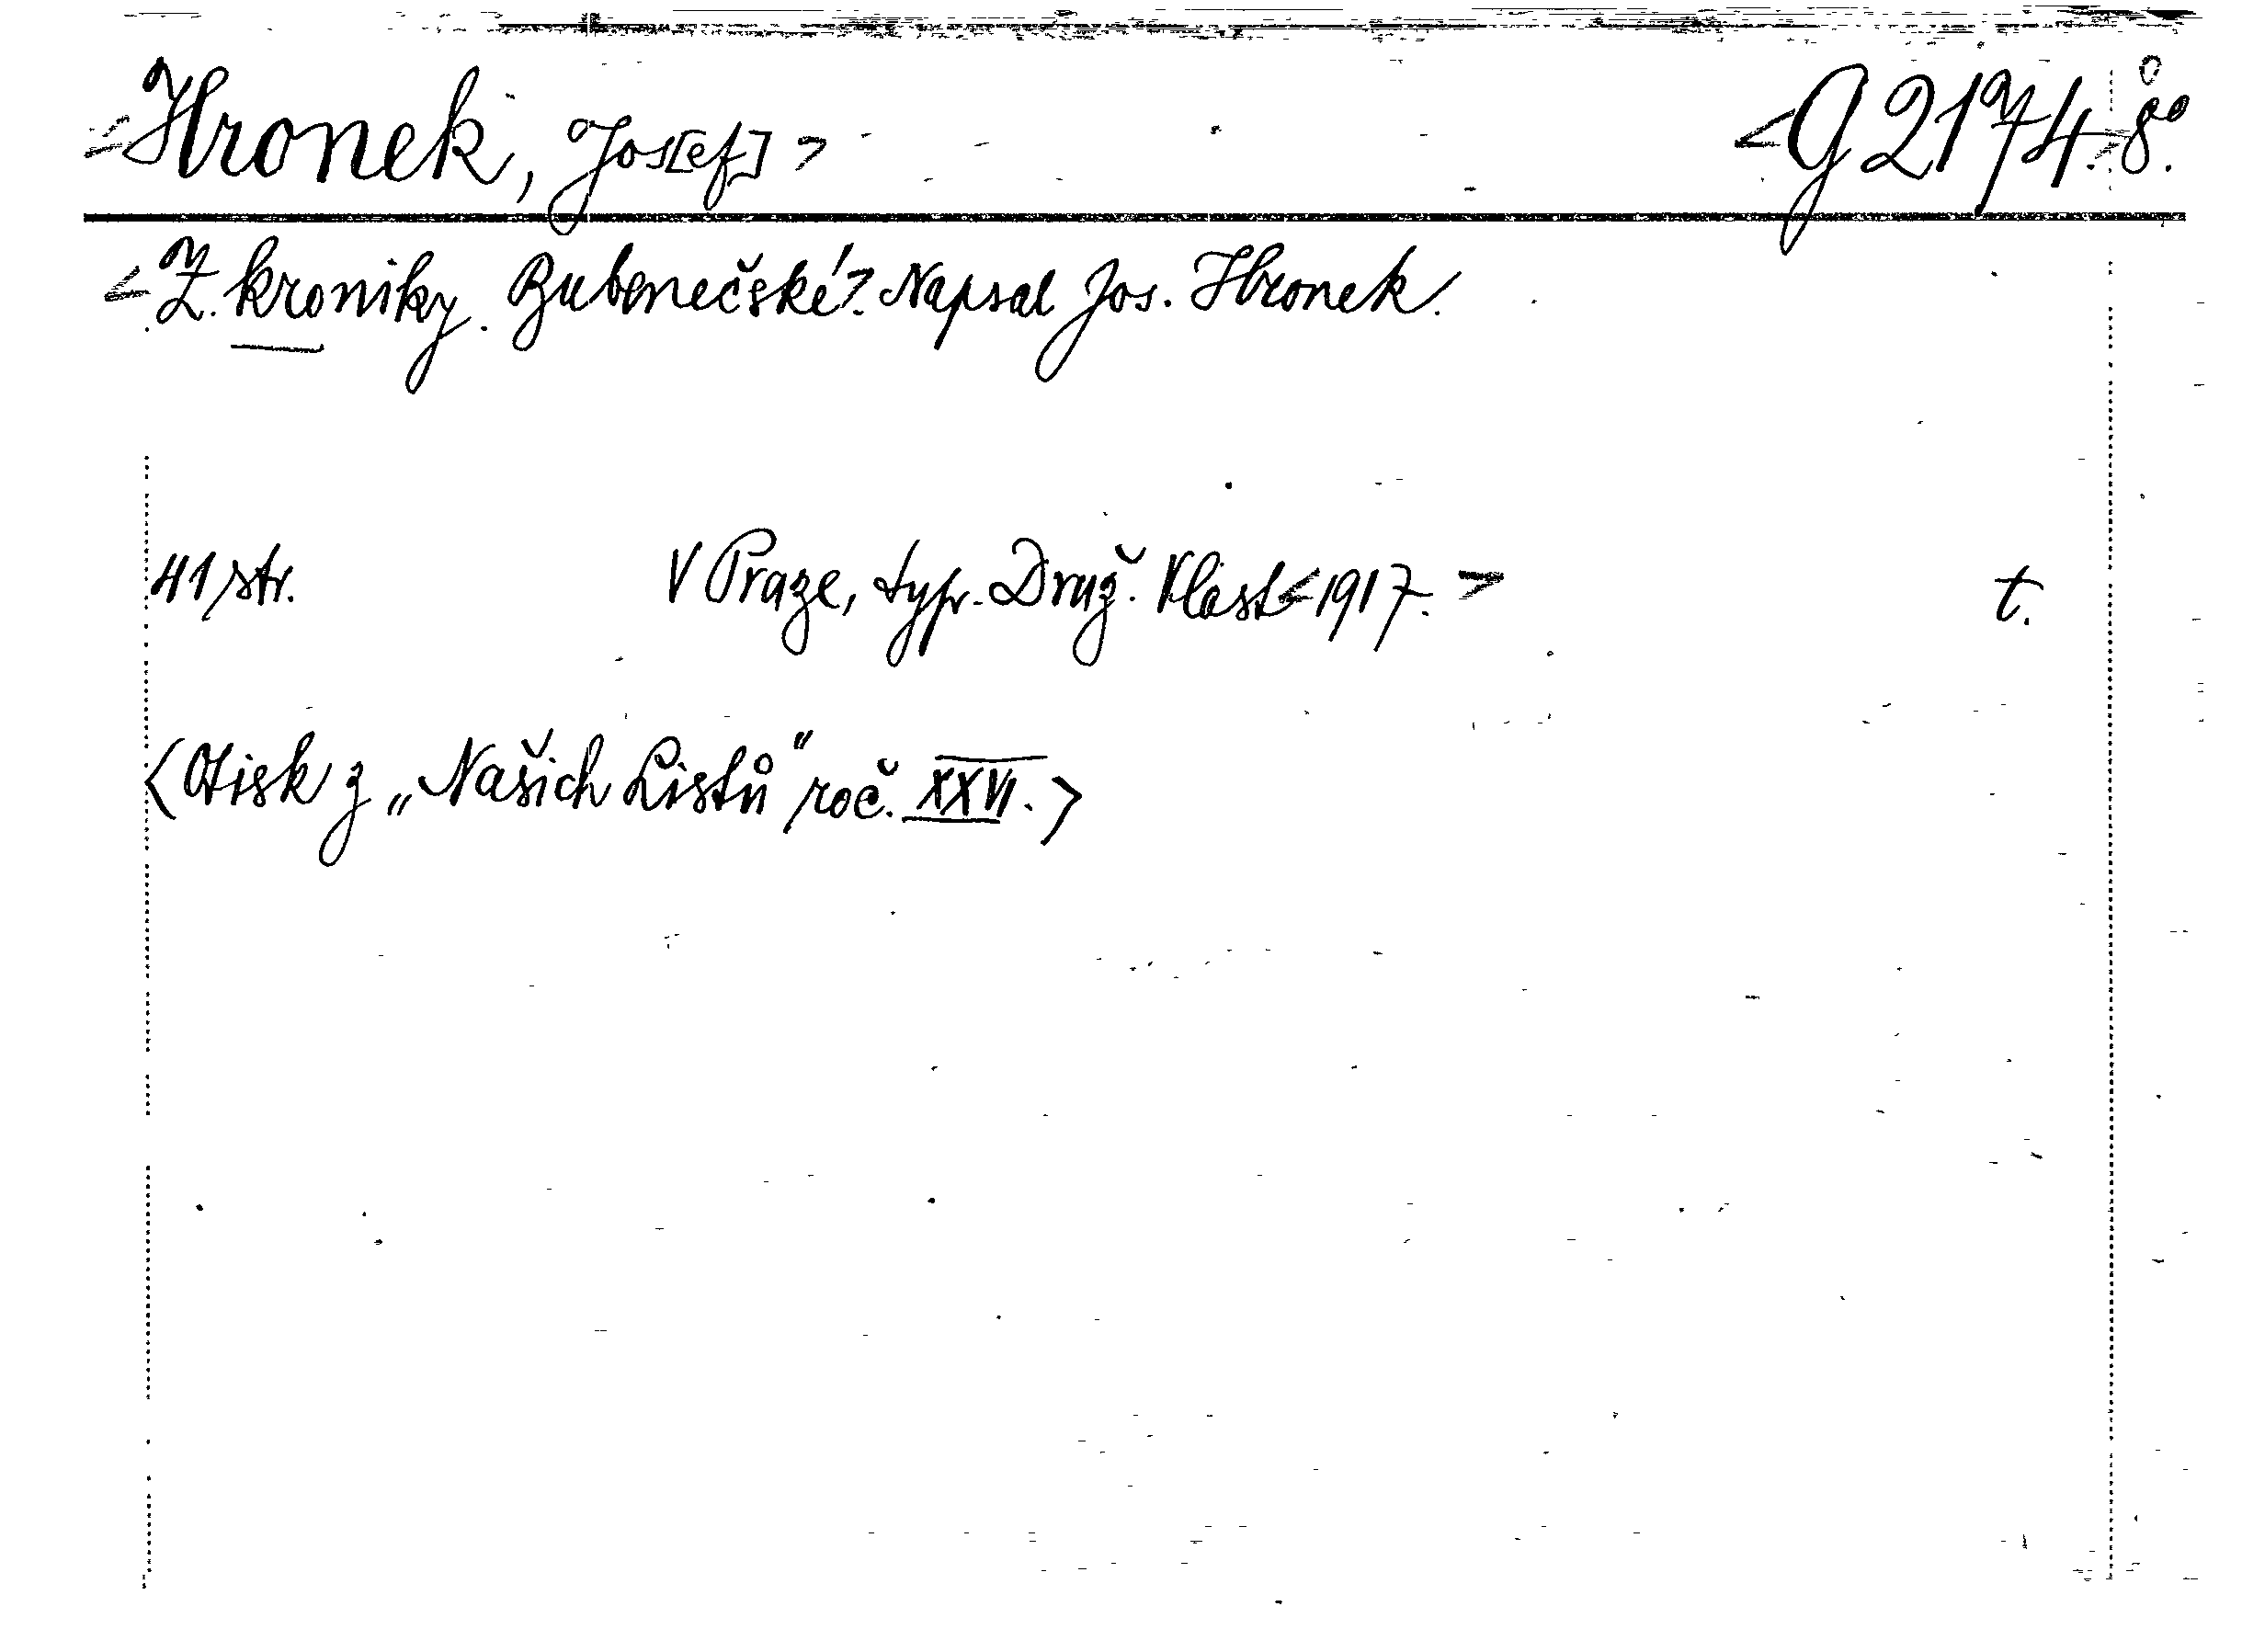 <Hronek, Jos[ef]> <G 2174.> 8°.
<Z kroniky Bubenečské>. Napsal Jos. Hronek.
41 str. V Praze, typ. Druž. Vlast <1917.> t.
(Otisk z „Našich Listů" roč. XXVI.)